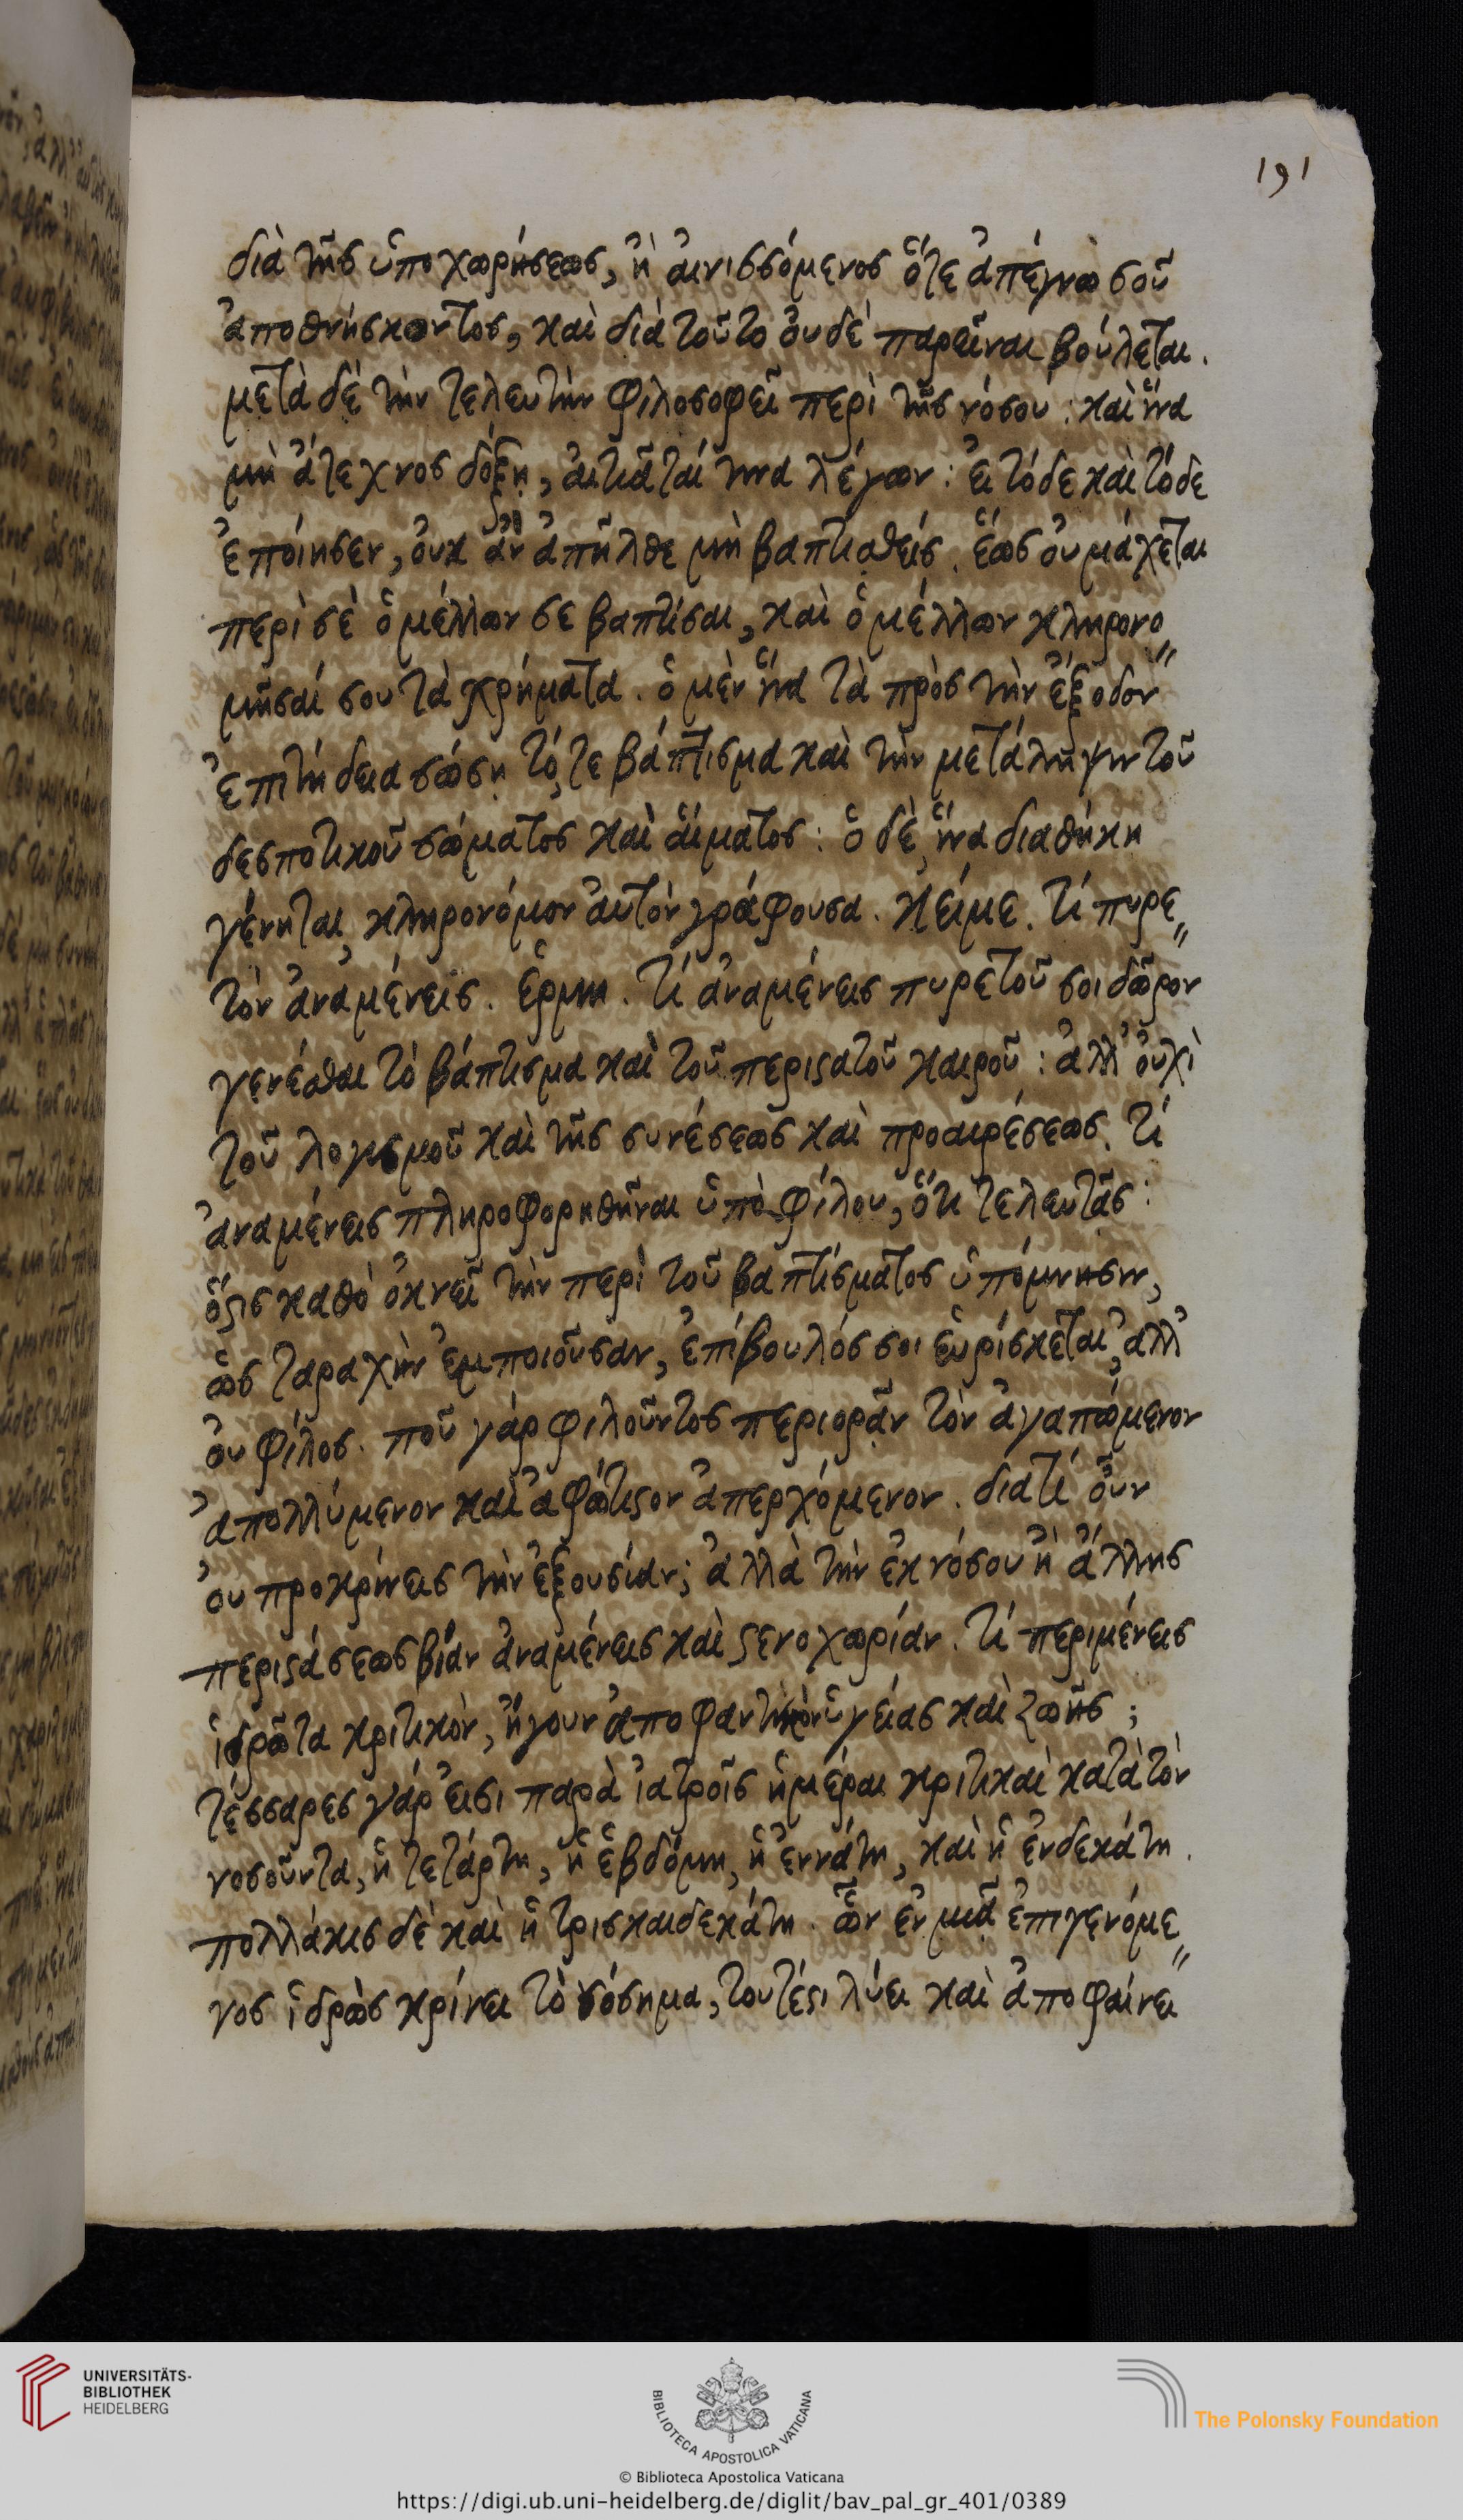 191
διὰ τῆς ὑποχωρήσεως, ἢ αἰνισσόμενος ὅτε ἀπέγνω σοῦ
ἀποθνήσκοντος, καὶ διὰ τοῦτο οὐδὲ παρεῖναι βούλεται.
μετὰ δὲ τὴν τελευτὴν φιλοσοφεῖ περὶ τῆς νόσου: καὶ ἵνα
μὴ ἄτεχνος δόξη, αἰτιᾶταί τινα λέγων: εἰ τόδε καὶ τόδε
ἐποίησεν, οὐκ ἂν ἀπῆλθε μὴ βαπτισθείς. ἕως οὐ μάχεται
περὶ σὲ ὁ μέλλων σε βαπτίσαι, καὶ ὁ μέλλων κληρονο
μῆσαί σου τὰ χρήματα. ὁ μὲν ἵνα τὰ πρὸς τὴν ἔξοδον
ἐπιτήδεια σώση τό, τε βάπτισμα καὶ τὴν μετάληψιν τοῦ
δεσποτικοῦ σώματος καὶ αἵματος: ὁ δὲ, ἵνα διαθήκη
γένηται, κληρονόμον αὐτὸν γράφουσα. κείμε. τί πυρε
τὸν ἀναμένεις. ἑρμη. τί ἀναμένεις πυρετοῦ σοι δῶρον
γενέσθαι τὸ βάπτισμα καὶ τοῦ περιστατοῦ καιροῦ: ἀλλ' οὐχὶ
τοῦ λογισμοῦ καὶ τῆς συνέσεως καὶ προαιρέσεως. τί
ἀναμένεις πληροφορηθῆναι ὑπὸ φίλου, ὅτι τελευτᾶς:
ὅστις καθὸ ὀκνεῖ τὴν περὶ τοῦ βαπτίσματος ὑπόμνησιν,
ὡς ταραχὴν ἐμποιοῦσαν, ἐπίβουλός σοι εὑρίσκεται, ἀλλ'
οὐ φίλος. ποῦ γάρ φιλοῦντος περιορᾶν τὸν ἀγαπώμενον
ἀπολλύμενον καὶ ἀφώτιστον ἀπερχόμενον. διατί οὖν
οὐ προκρίνεις τὴν ἐξουσίαν; ἀλλὰ τὴν ἐκ νόσου ἢ ἄλλης
περιστάσεως βίαν ἀναμένεις καὶ στενοχωρίαν. τί περιμένεις
ἱδρῶτα κριτικὸν, ἤγουν ἀποφαντικὸν ὑγείας καὶ ζωῆς;
τέσσαρες γάρ εἰσι παρὰ ἰατροῖς ἡμέραι κριτικαὶ κατὰ τὸν
νοσοῦντα, ἡ τετάρτη, ἡ ἑβδόμη, ἡ ἐννάτη, καὶ ἡ ἐνδεκάτη.
πολλάκις δὲ καὶ ἡ τρισκαιδεκάτη. ὧν ἐν μιᾷ ἐπιγενόμε
νος ἱδρὼς κρίνει τὸ νόσημα, τουτέστι λύει καὶ ἀποφαίνει
UNIVERSITÄTS-
BIBLIOTHEK
HEIDELBERG
BIBLIOTECA APOSTOLICA VATICANA
The Polonsky Foundation
© Biblioteca Apostolica Vaticana
https://digi.ub.uni-heidelberg.de/diglit/bav_pal_gr_401/0389